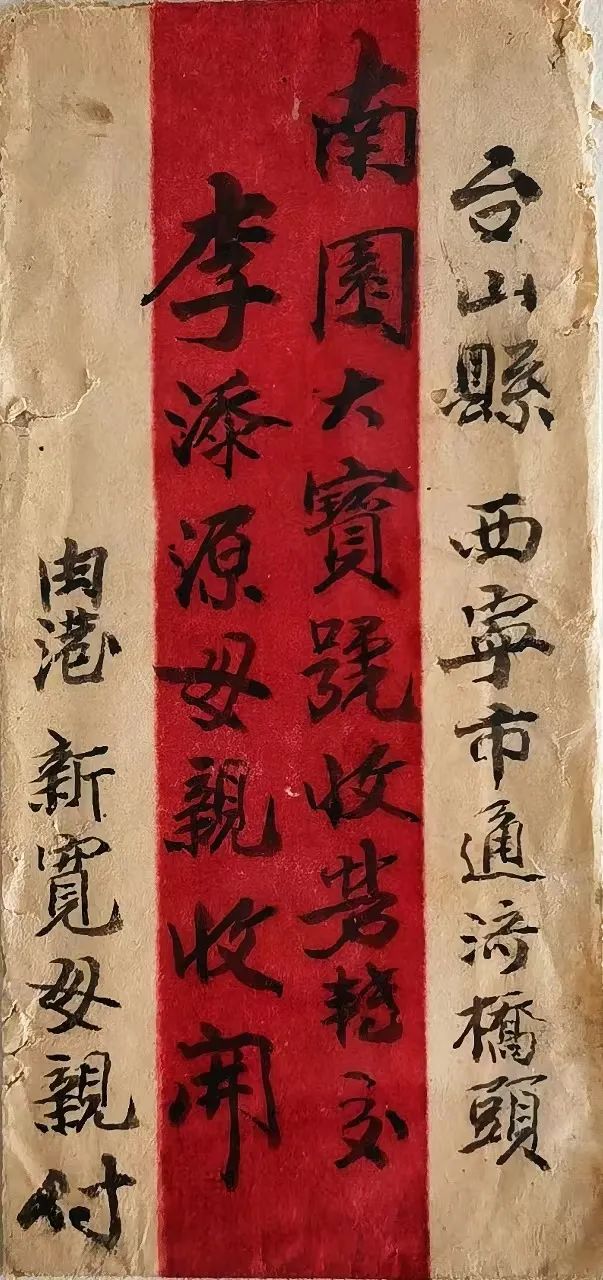 台山縣 西寧市通济橋頭
南園大寶號收劳轉交
李添源母親收開
由港 新寬母親付